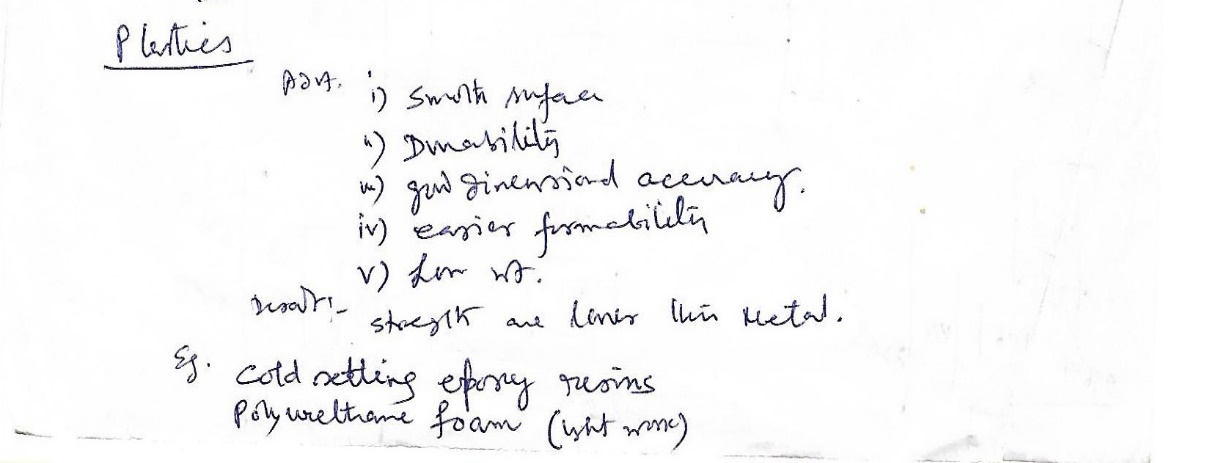 Plastics
Adv. i) Smooth surface
ii) Durability
iii) good dimensional accuracy.
iv) easier formability
v) Low wt.
Disadv:- strength are lower than metal.
Eg. cold setting epoxy resins
Polyurethane foam (light work)